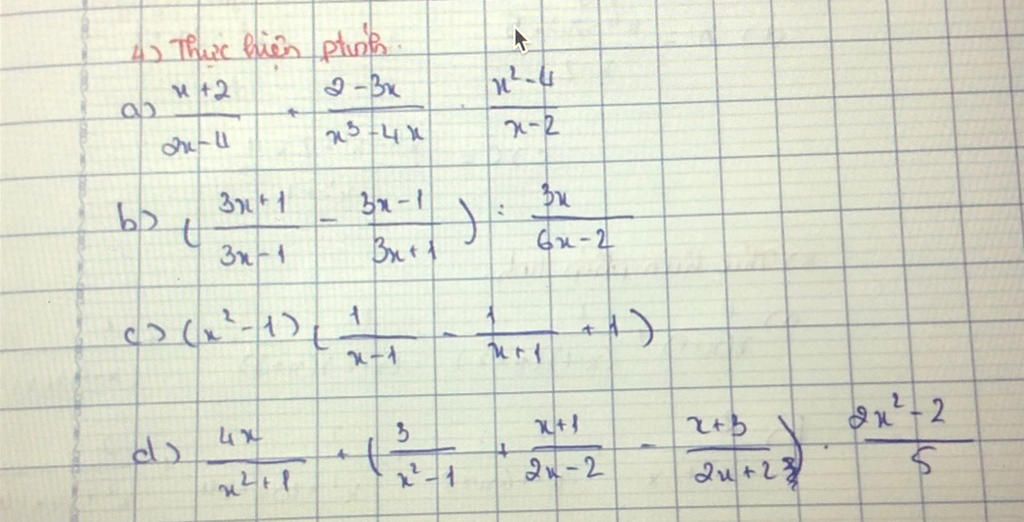 4) Thực hiện phính.
a) \frac{x+2}{2x-4} + \frac{2-3x}{x^3-4x} \cdot \frac{x^2-4}{x-2}
b) ( \frac{3x+1}{3x-1} - \frac{3x-1}{3x+1} ) : \frac{3x}{6x-2}
c) (x^2-1) ( \frac{1}{x-1} - \frac{1}{x+1} + 1 )
d) \frac{4x}{x^2+1} + ( \frac{3}{x^2-1} + \frac{x+1}{2x-2} - \frac{x+3}{2x+2} ) \cdot \frac{2x^2-2}{5}